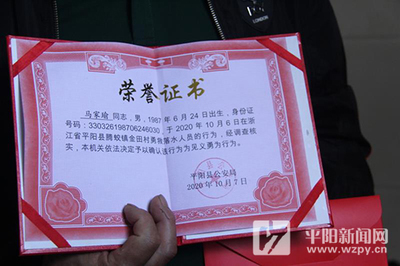 LONDON
荣誉证书
马家瑜 同志,男,1987 年 6 月 24 日出生,身份证
号码:330326198706246030,于 2020 年 10 月 6 日在浙
江省平阳县腾蛟镇金田村勇救落水人员的行为,经调查核
实,本机关依法决定予以确认该行为为见义勇为行为。
平阳县公安局
2020 年 10 月 7 日
平阳新闻网
www.wzpy.com